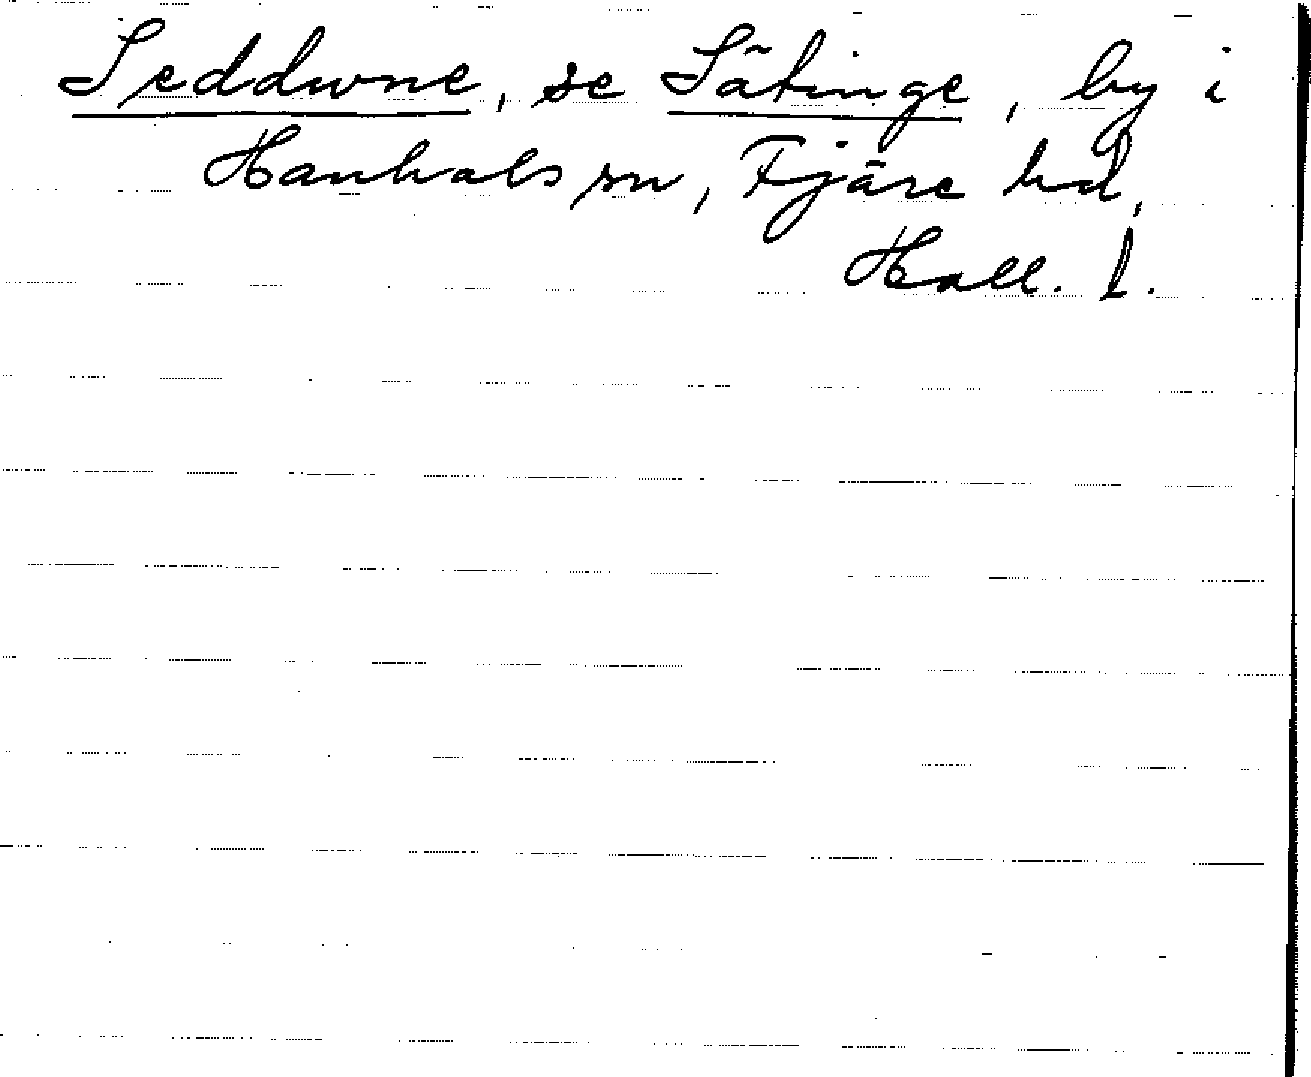 Seddwne, se Sätinge, by i
Hanhals sn, Fjäre hd,
Hall. l.